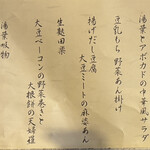 湯葉とアボカドのゆず風サラダ
豆乳もち 野菜あん掛け
揚げだし豆腐
大豆ミートの麻婆あん
生麩田楽
大豆ベーコンの野菜巻きと
大根餅の天婦羅
湯葉吸物